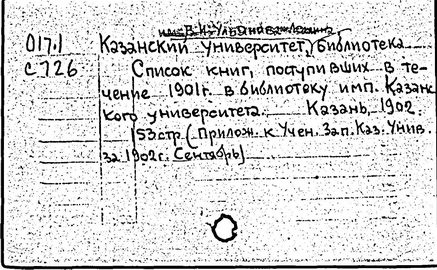 им. В.И. Ульянова-Ленина
017.1 Казанский университет, библиотека
С726 Список книг, поступивших в те-
чение 1901г. в библиотеку имп. Казанс
кого университета. Казань, 1902.
153стр. (Прилож. к Учен. Зап. Каз. Унив.
за 1902г. Сентябрь)